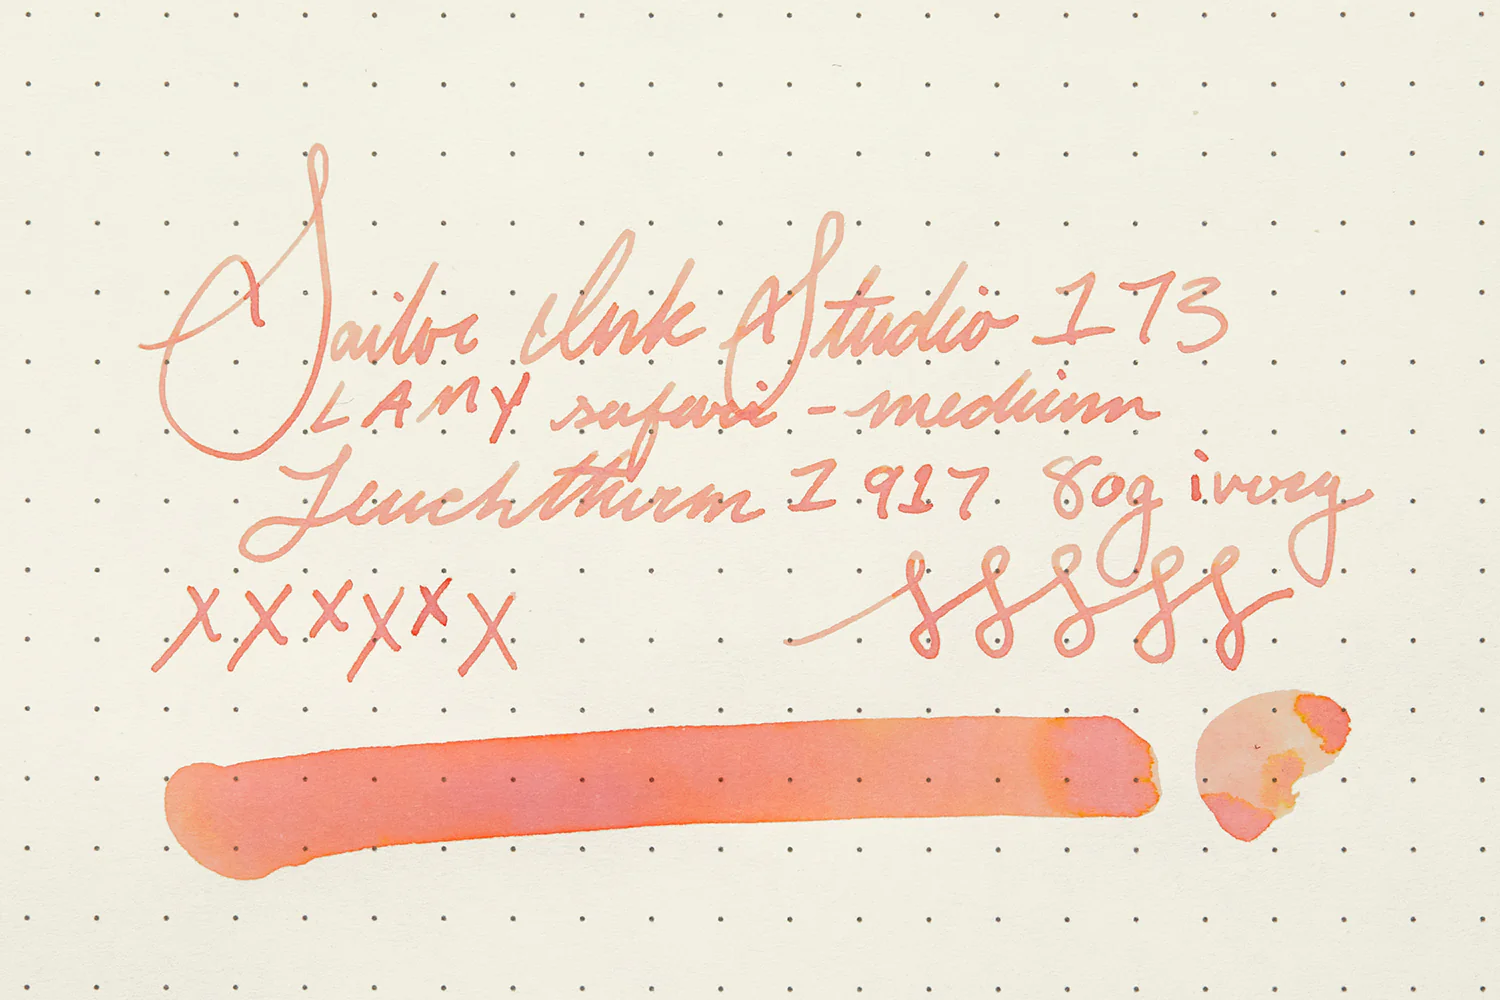 Sailor Ink Studio 173
LAMY safari - medium
Leuchtturm 1917 80g ivory
xxxxxx